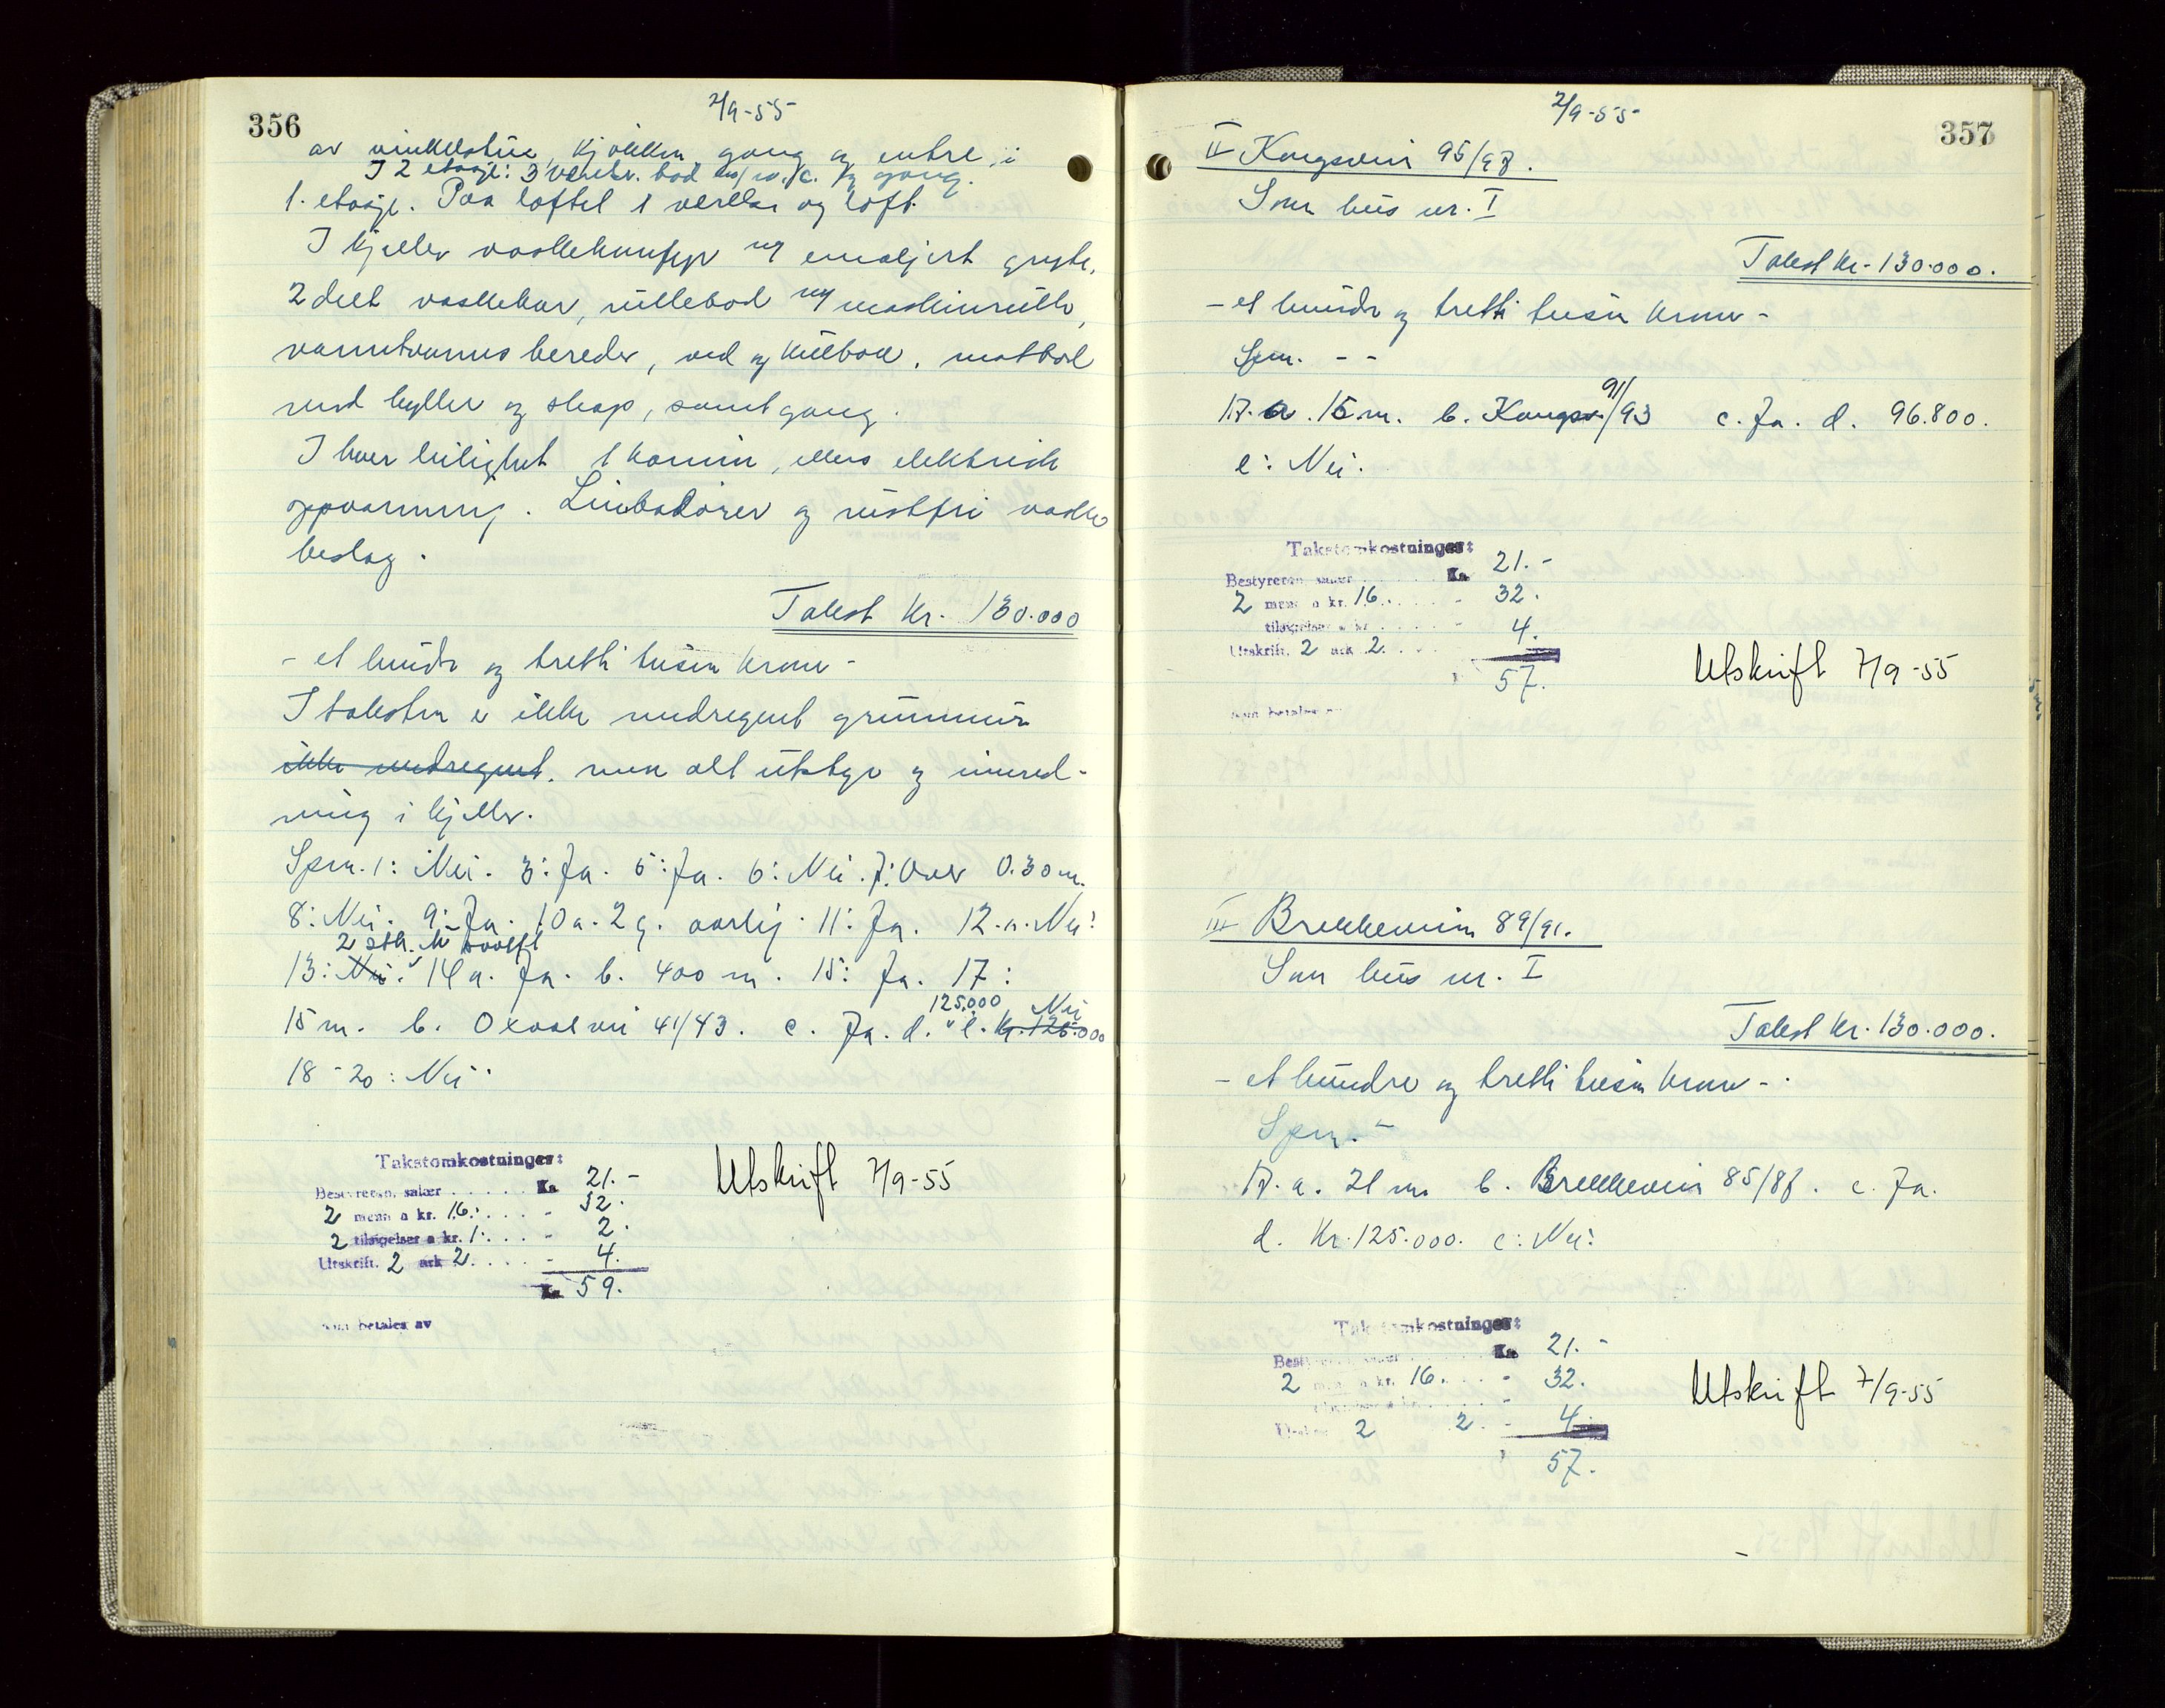 356
2/9-55
av vinkelstue, kjøkken gang og entre, i
I 2 etasje: 3 værelser. bad m/w.c. og gang.
1. etasje. Paa loftet 1 værelse og loft.
I kjeller vaskekum m/ emaljert gryte,
2 delt vaskekar, rullebod m/ maskinrulle,
varmtvannsbereder, ved og kulbod, matbod
med hyller og skap, samt gang.
I hver leilighet 1 kamin, ellers elektrisk
oppvarming. Limbadører og rustfri vaske
beslag.
Takst Kr. 130.000
- et hundre og tretti tusen kroner -
I taksten er ikke medregnet grunnmur
ikke medregnet. men alt utstyr og innred-
ning i kjeller.
Spm. 1: Nei. 3: Ja. 5: Ja. 6: Nei. 7: Over 0.30 m.
8: Nei. 9: Ja. 10a. 2 g. aarlig. 11: Ja. 12.a. Nei.
2 stk.
13: Nei. 14 a. Ja. b. 400 m. 15: Ja. 17:
125.000 Nei
15 m. b. Oxvalvei 41/43. c. Ja. d. " e. Kr. 125.000
18-20: Nei.
Takstomkostninger:
Bestyreren, salær ..... Kr. 21.-
2 menn a kr. 16. .... - 32.
2 tilsigelser a kr. 1. ... - 2.
Utskrift. 2 ark 2. .... - 4.
Kr. 59.
som betales av
Utskrift 7/9-55
2/9-55
357
II Kongsvei 95/97.
Som hus nr. I
Takst kr. 130.000.
- et hundre og tretti tusen kroner -
Spm. - -
91/
17. a. 15 m. b. Kongsv. /93 c. Ja. d. 96.800.
e: Nei.
Takstomkostninger:
Bestyreren salær Kr. 21.-
2 menn a kr. 16. .... - 32.
tilsigelser a kr. ..... -
Utskrift. 2 ark 2. .... 4.
57.
som betales av
Utskrift 7/9-55
III Brekkeveien 89/91.
Som hus nr. I
Takst kr. 130.000.
- et hundre og tretti tusen kroner -.
Spm. -
17. a. 21 m. b. Brekkeveien 85/87. c. Ja.
d. Kr. 125.000. e: Nei.
Takstomkostninger:
Bestyreren salær Kr. 21.-
2 menn a kr. 16. ... - 32.
Utskrift 2 2. - 4.
57.
Utskrift 7/9-55